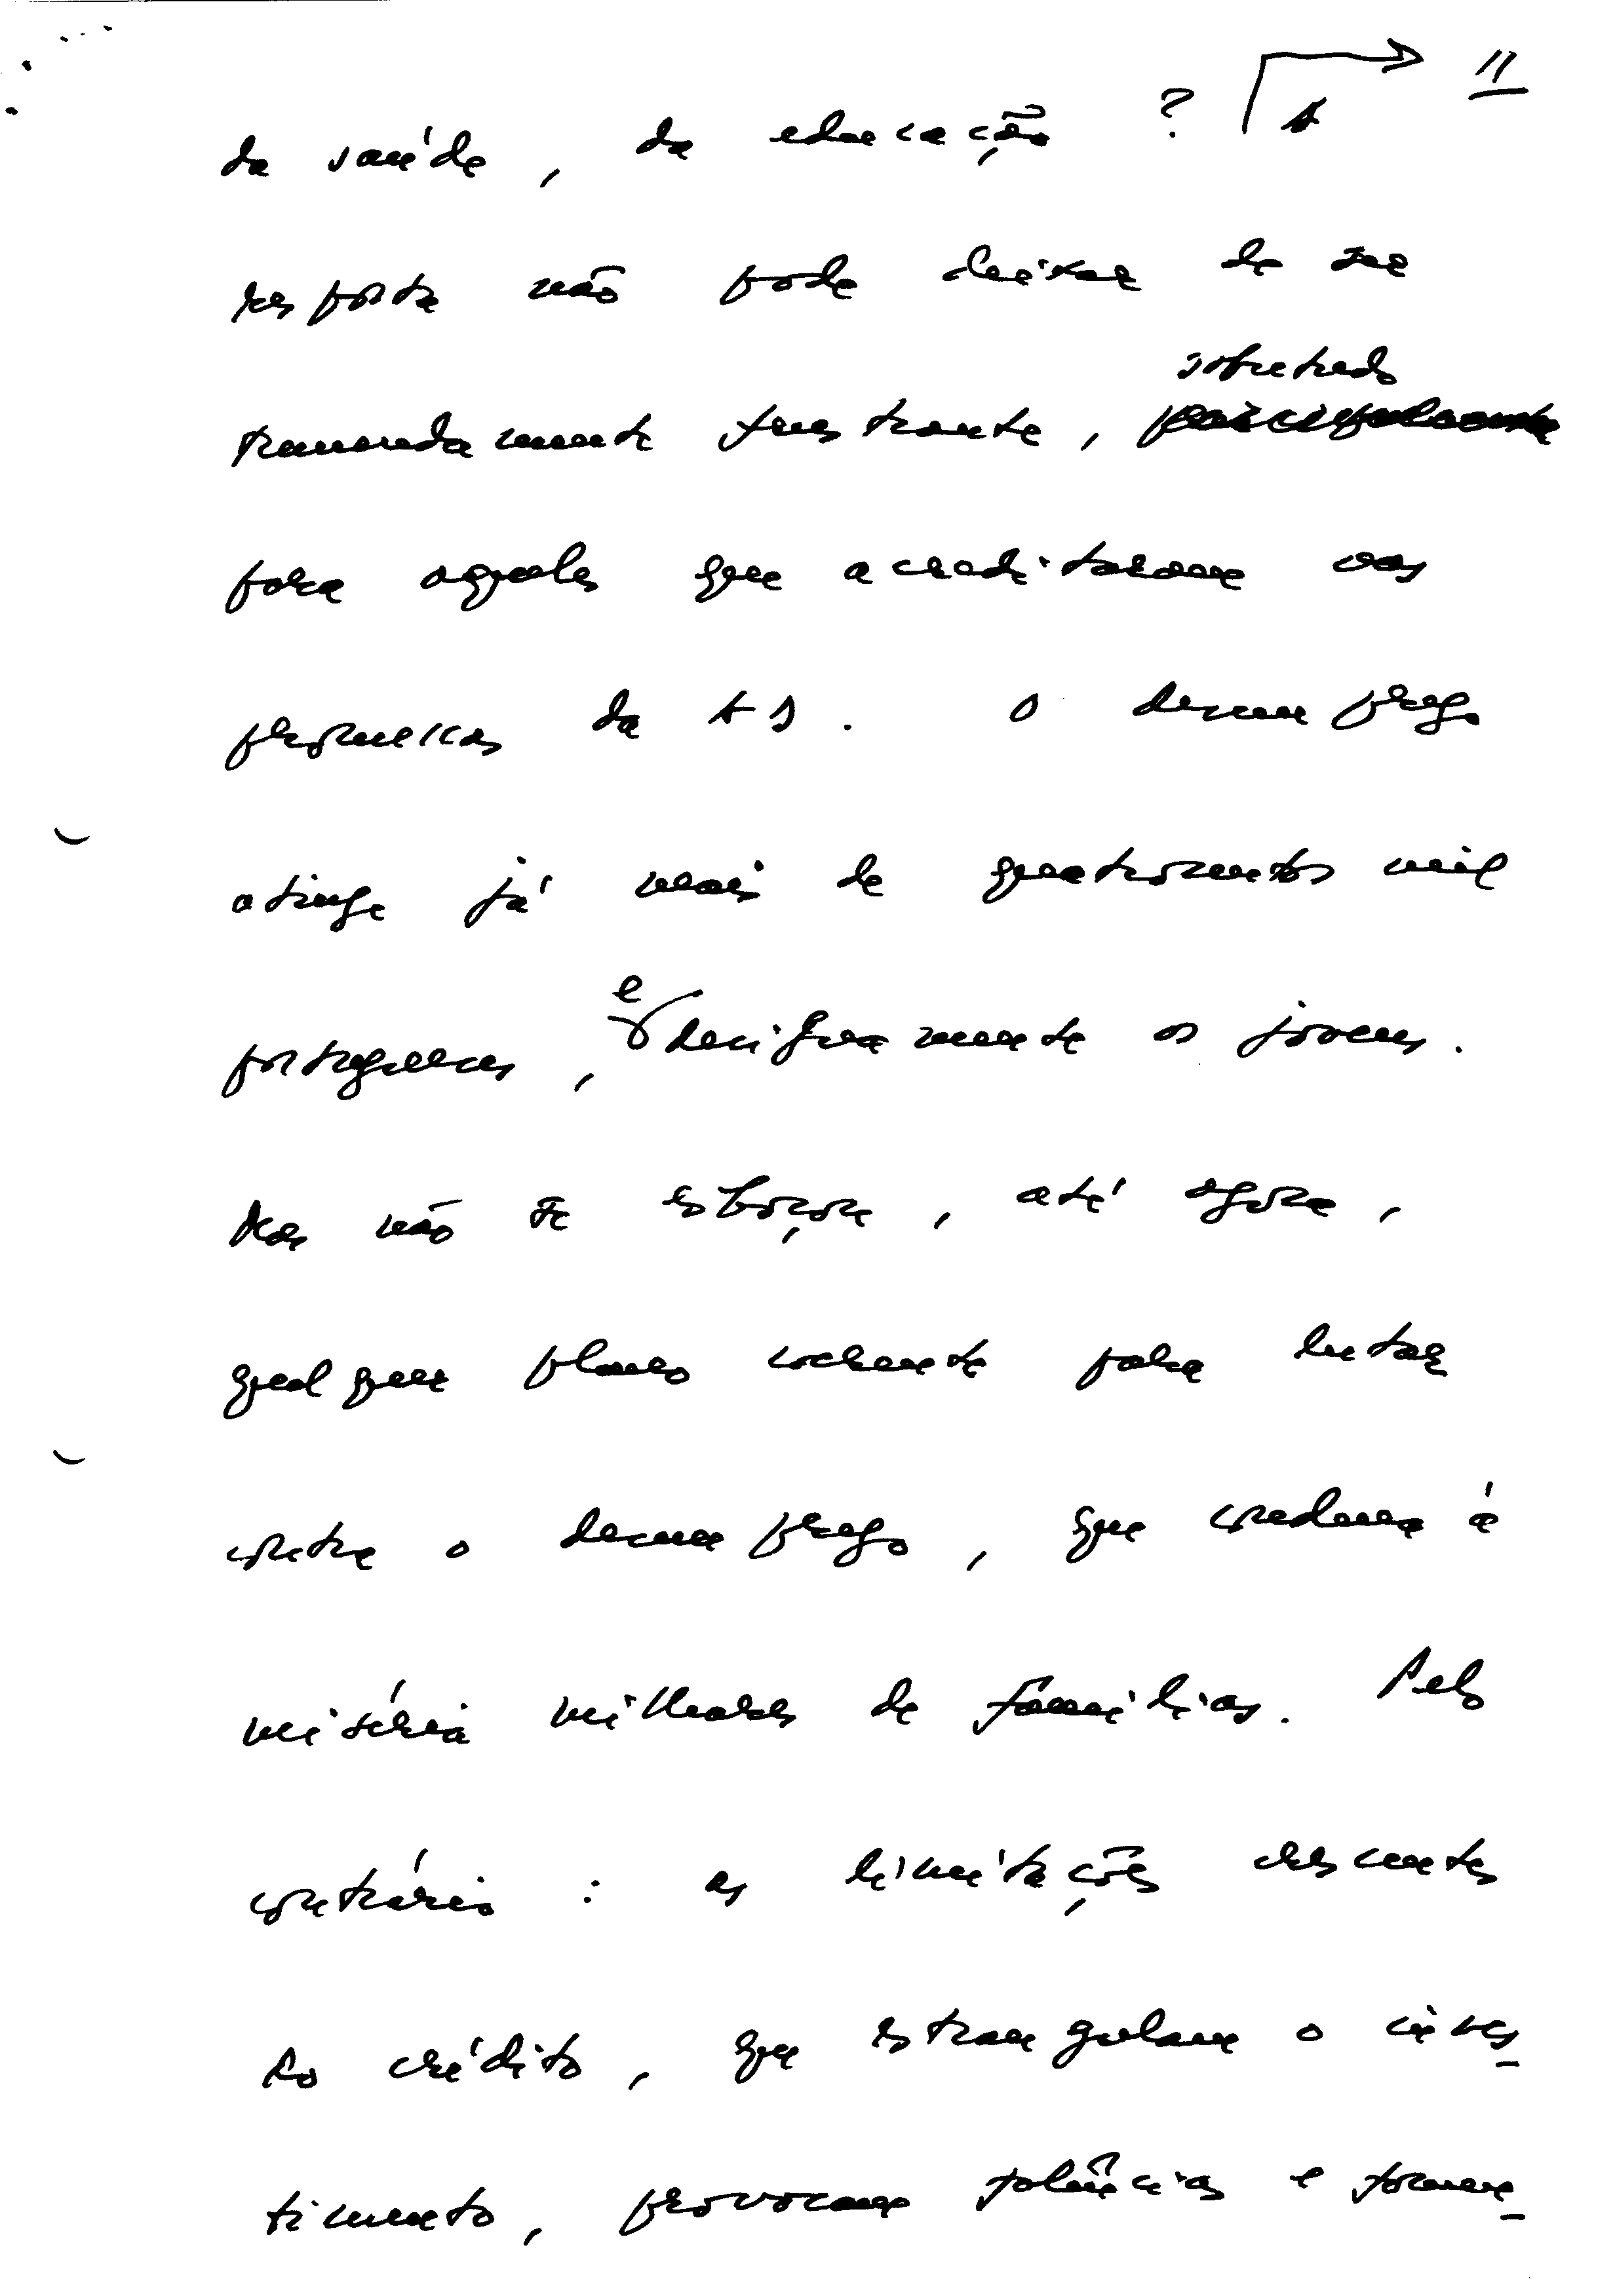 11
da saúde, da educação? A
resposta não pode deixar de ser
sobretudo
tremendamente frustrante, principalmente
para aqueles que acreditaram nas
promessas da AD. O desemprego
atinge já mais de quatrocentos mil
portugueses, e designadamente os jovens.
Mas não se esboçou, até agora,
qualquer plano coerente para lutar
contra o desemprego, que condena à
miséria milhares de famílias. Pelo
contrário: as limitações crescentes
do crédito, que estrangulam o inves-
timento, provocam falências e tornam